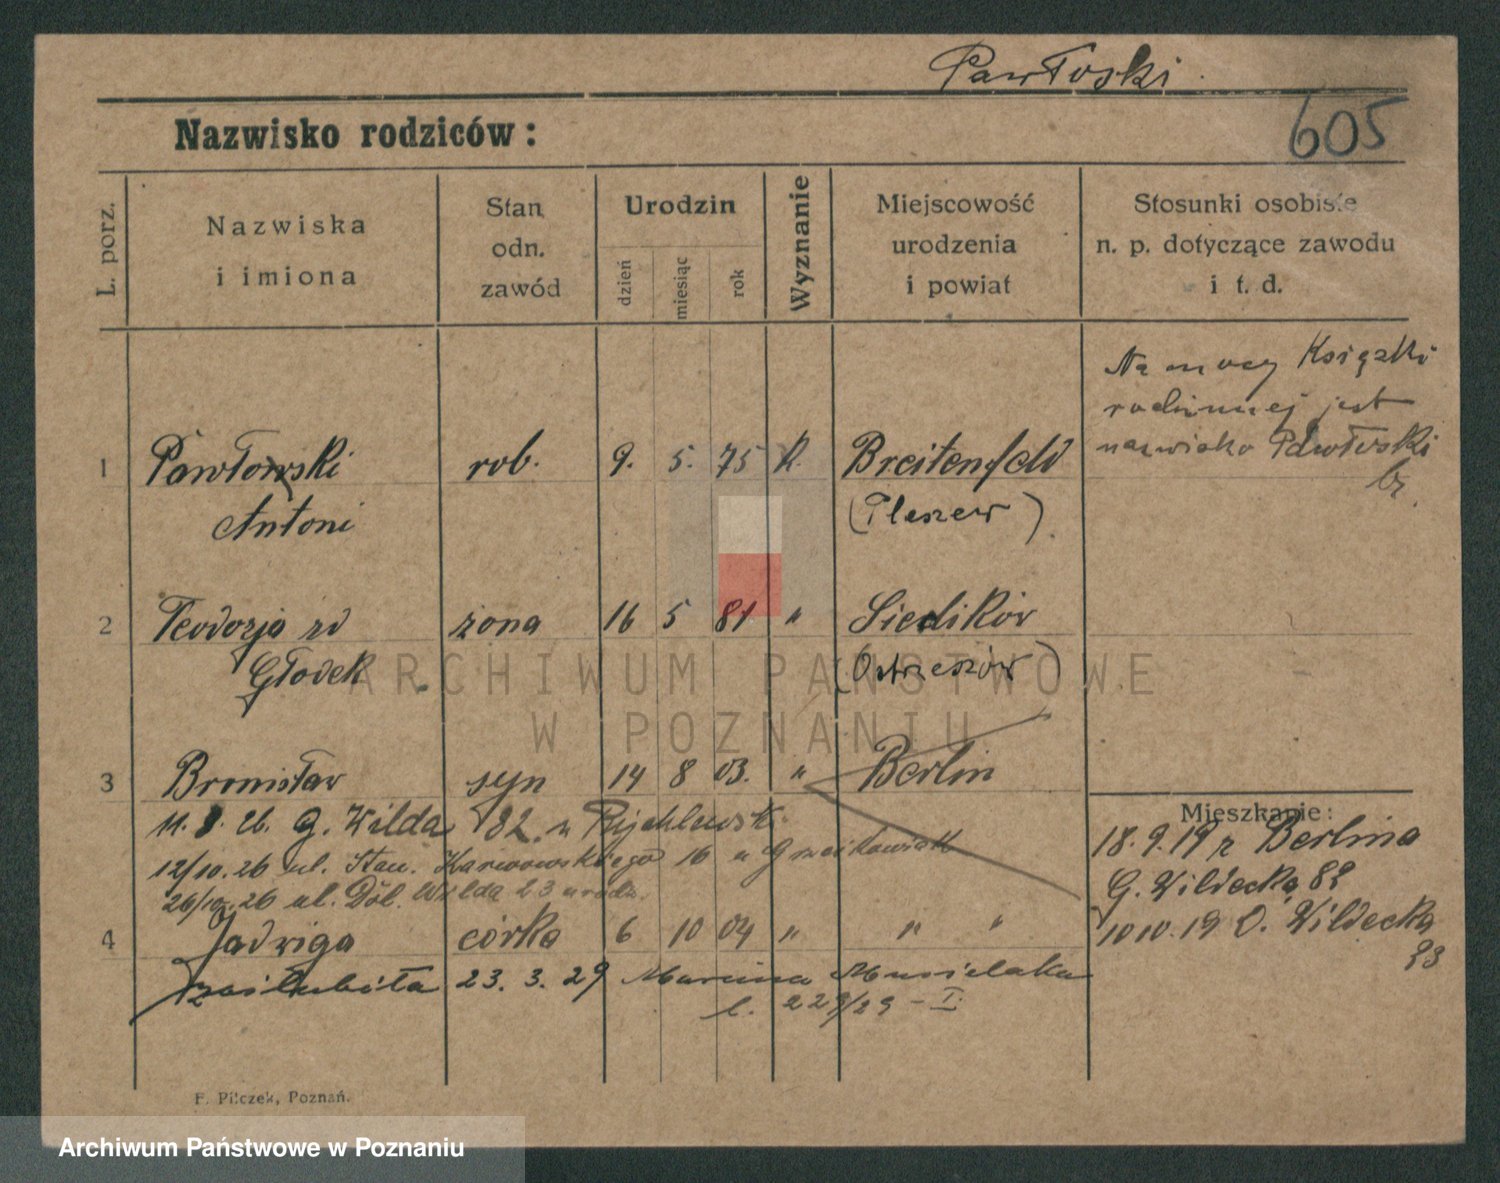 Pawłoski
605
Nazwisko rodziców:
L. porz.
Nazwiska
i imiona
Stan
odn.
zawód
Urodzin
dzień
miesiąc
rok
Wyznanie
Miejscowość
urodzenia
i powiat
Stosunki osobiste
n. p. dotyczące zawodu
i t. d.
Na mocy Książki
rodzinnej jest
nazwisko Pawłoski
1 Pawłowski rob. 9. 5. 75 K. Breitenfeld
Antoni (Pleszew)
2 Teodozja zd żona 16 5 81 " Siedlików
Głodek (Ostrzeszów)
ARCHIWUM PAŃSTWOWE
W POZNANIU
3 Bronisław syn 14 8 03. " Berlin
11. 8. 26. G. Wilda 82
12/10.26 ul. Stan. Karwowskiego 16 u
26/10.26 ul. Dol. Wilda 23
4 Jadwiga córka 6 10 04 " " "
zaślubiła 23. 3. 29 Marcina Musielaka
l. 229/29 - I.
Mieszkanie:
18.9.19 z Berlina
G. Wildecka 82
10 10.19 D. Wildecka
23
F. Pilczek, Poznań.
Archiwum Państwowe w Poznaniu